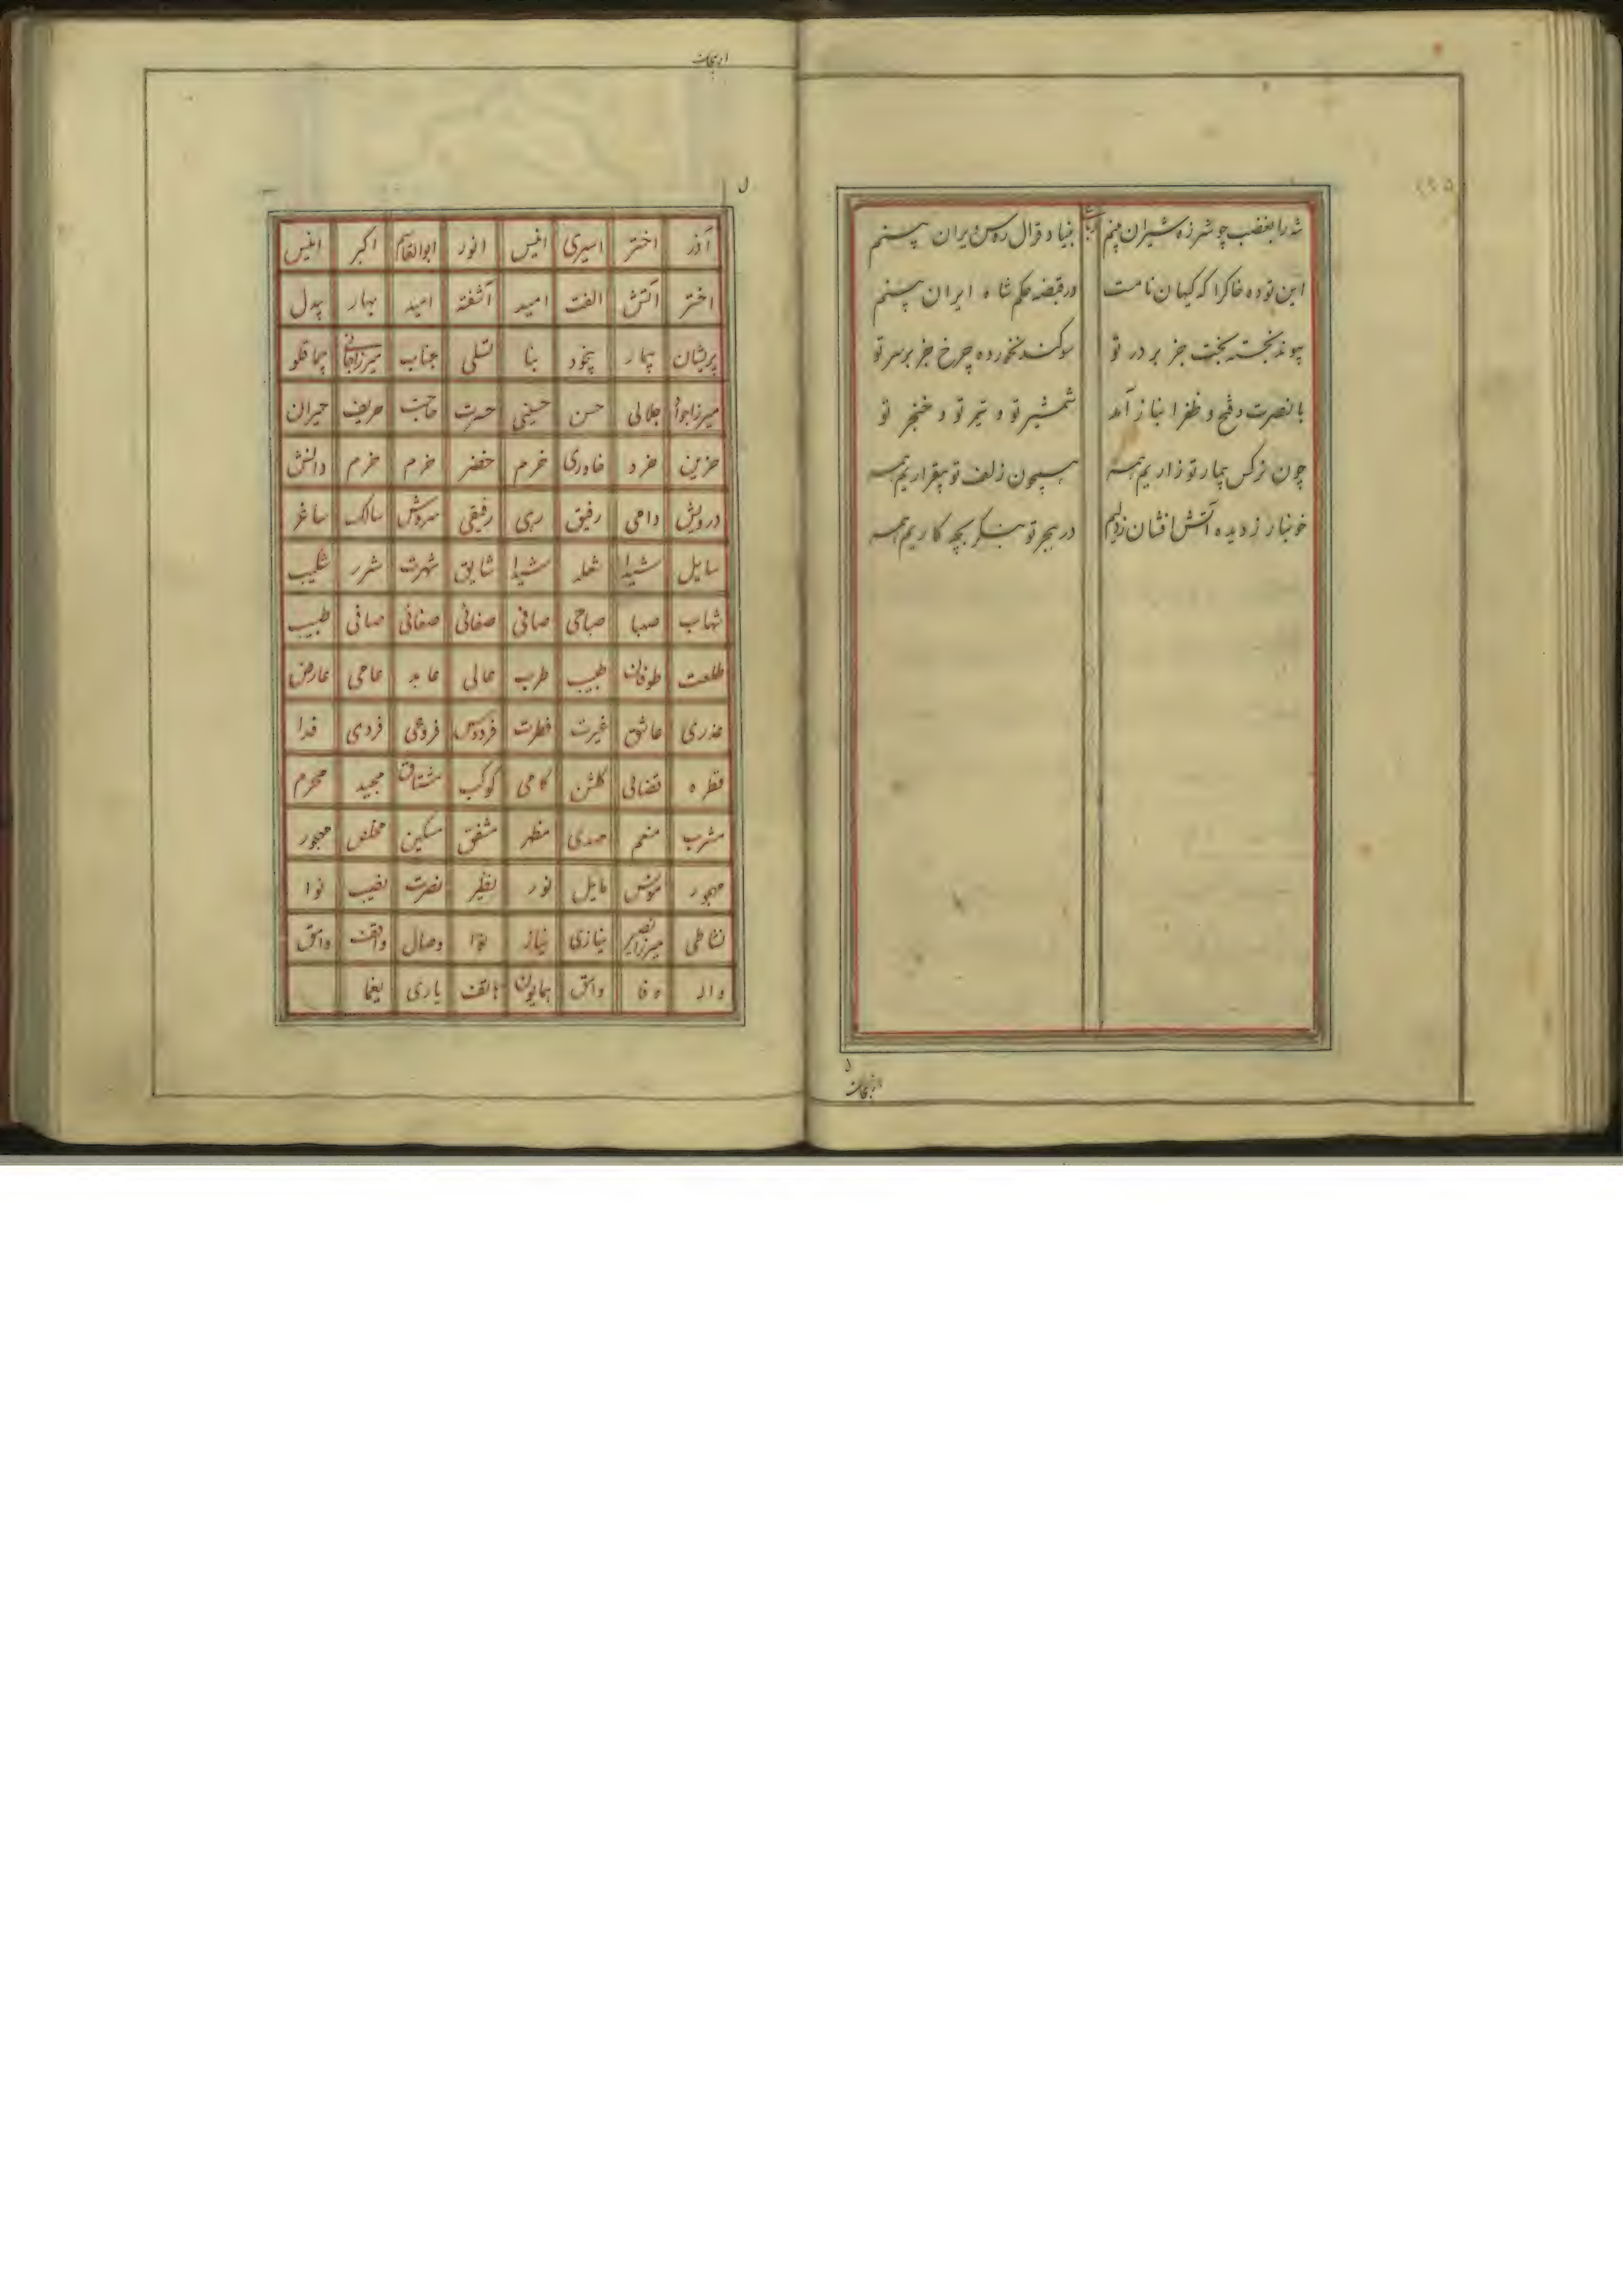 شه را بغضب چو شرزه شیران بینم بنیاد قرال روس ویران بینم
این توده خاکرا که کیهان نامست در قبضه حکم شاه ایران بینم
پیوند نجسته بخت جز بر در تو سوکند نخورده چرخ جز بر سر تو
با نصرت و فتح و ظفر انباز آمد شمشیر تو و تیر تو و خنجر تو
چون نرکس بیمار تو زاریم همه همچون زلف تو بیقراریم همه
خونبار ز دیده آتش افشان ز دلیم در هجر تو بنکر بچه کاریم همه
آذر اختر اسیری انیس انور ابوالقاسم اکبر انیس
اختر آتش الفت امید آشفته امید بهار بیدل
پریشان بیمار بیخود بینا تسلی جناب میرزا جانی
میرزا جواد جلالی حسن حسینی حسرت حاجب حریف حیران
حزین خرد خاوری خرم خضر خرم خرم دانش
درویش دامی رفیق رهی رفیقی سروش سالک ساغر
سایل شیدا شعله شیدا شایق شهرت شرر شکیب
شهاب صبا صباحی صافی صفائی صفائی صافی طبیب
طلعت طوفان طبیب طرب عالی عابد عامی عارض
عذری عاشق غیرت فطرت فردوس فروغی فردی فدا
قطره قضائی کلشن کامی کوکب مشتاق مجید محرم
مشرب منعم مظهر مشفق مسکین مخلص مهجور
مهجور مونس مایل نور نظیر نصرت نصیب نوا
نشاطی میرزا نصیر نیازی نیاز وصال واقف وامق
واله وفا وامق همایون هاتف یاری یغما